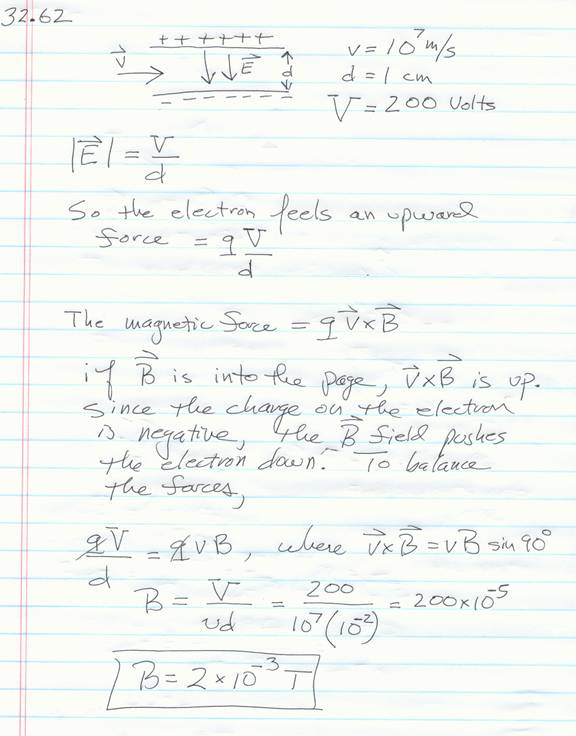 32.62
+ + + + + +
v⃗ E⃗ d
- - - - - -
v = 10⁷ m/s
d = 1 cm
V = 200 Volts
|E⃗| = V/d
So the electron feels an upward
force = q V/d
The magnetic force = q v⃗ × B⃗
if B⃗ is into the page, v⃗×B⃗ is up.
Since the charge on the electron
is negative, the B⃗ field pushes
the electron down. To balance
the forces,
qV/d = qvB, where v⃗×B⃗ = vB sin 90°
B = V/vd = 200/10⁷(10⁻²) = 200×10⁻⁵
B = 2 × 10⁻³ T